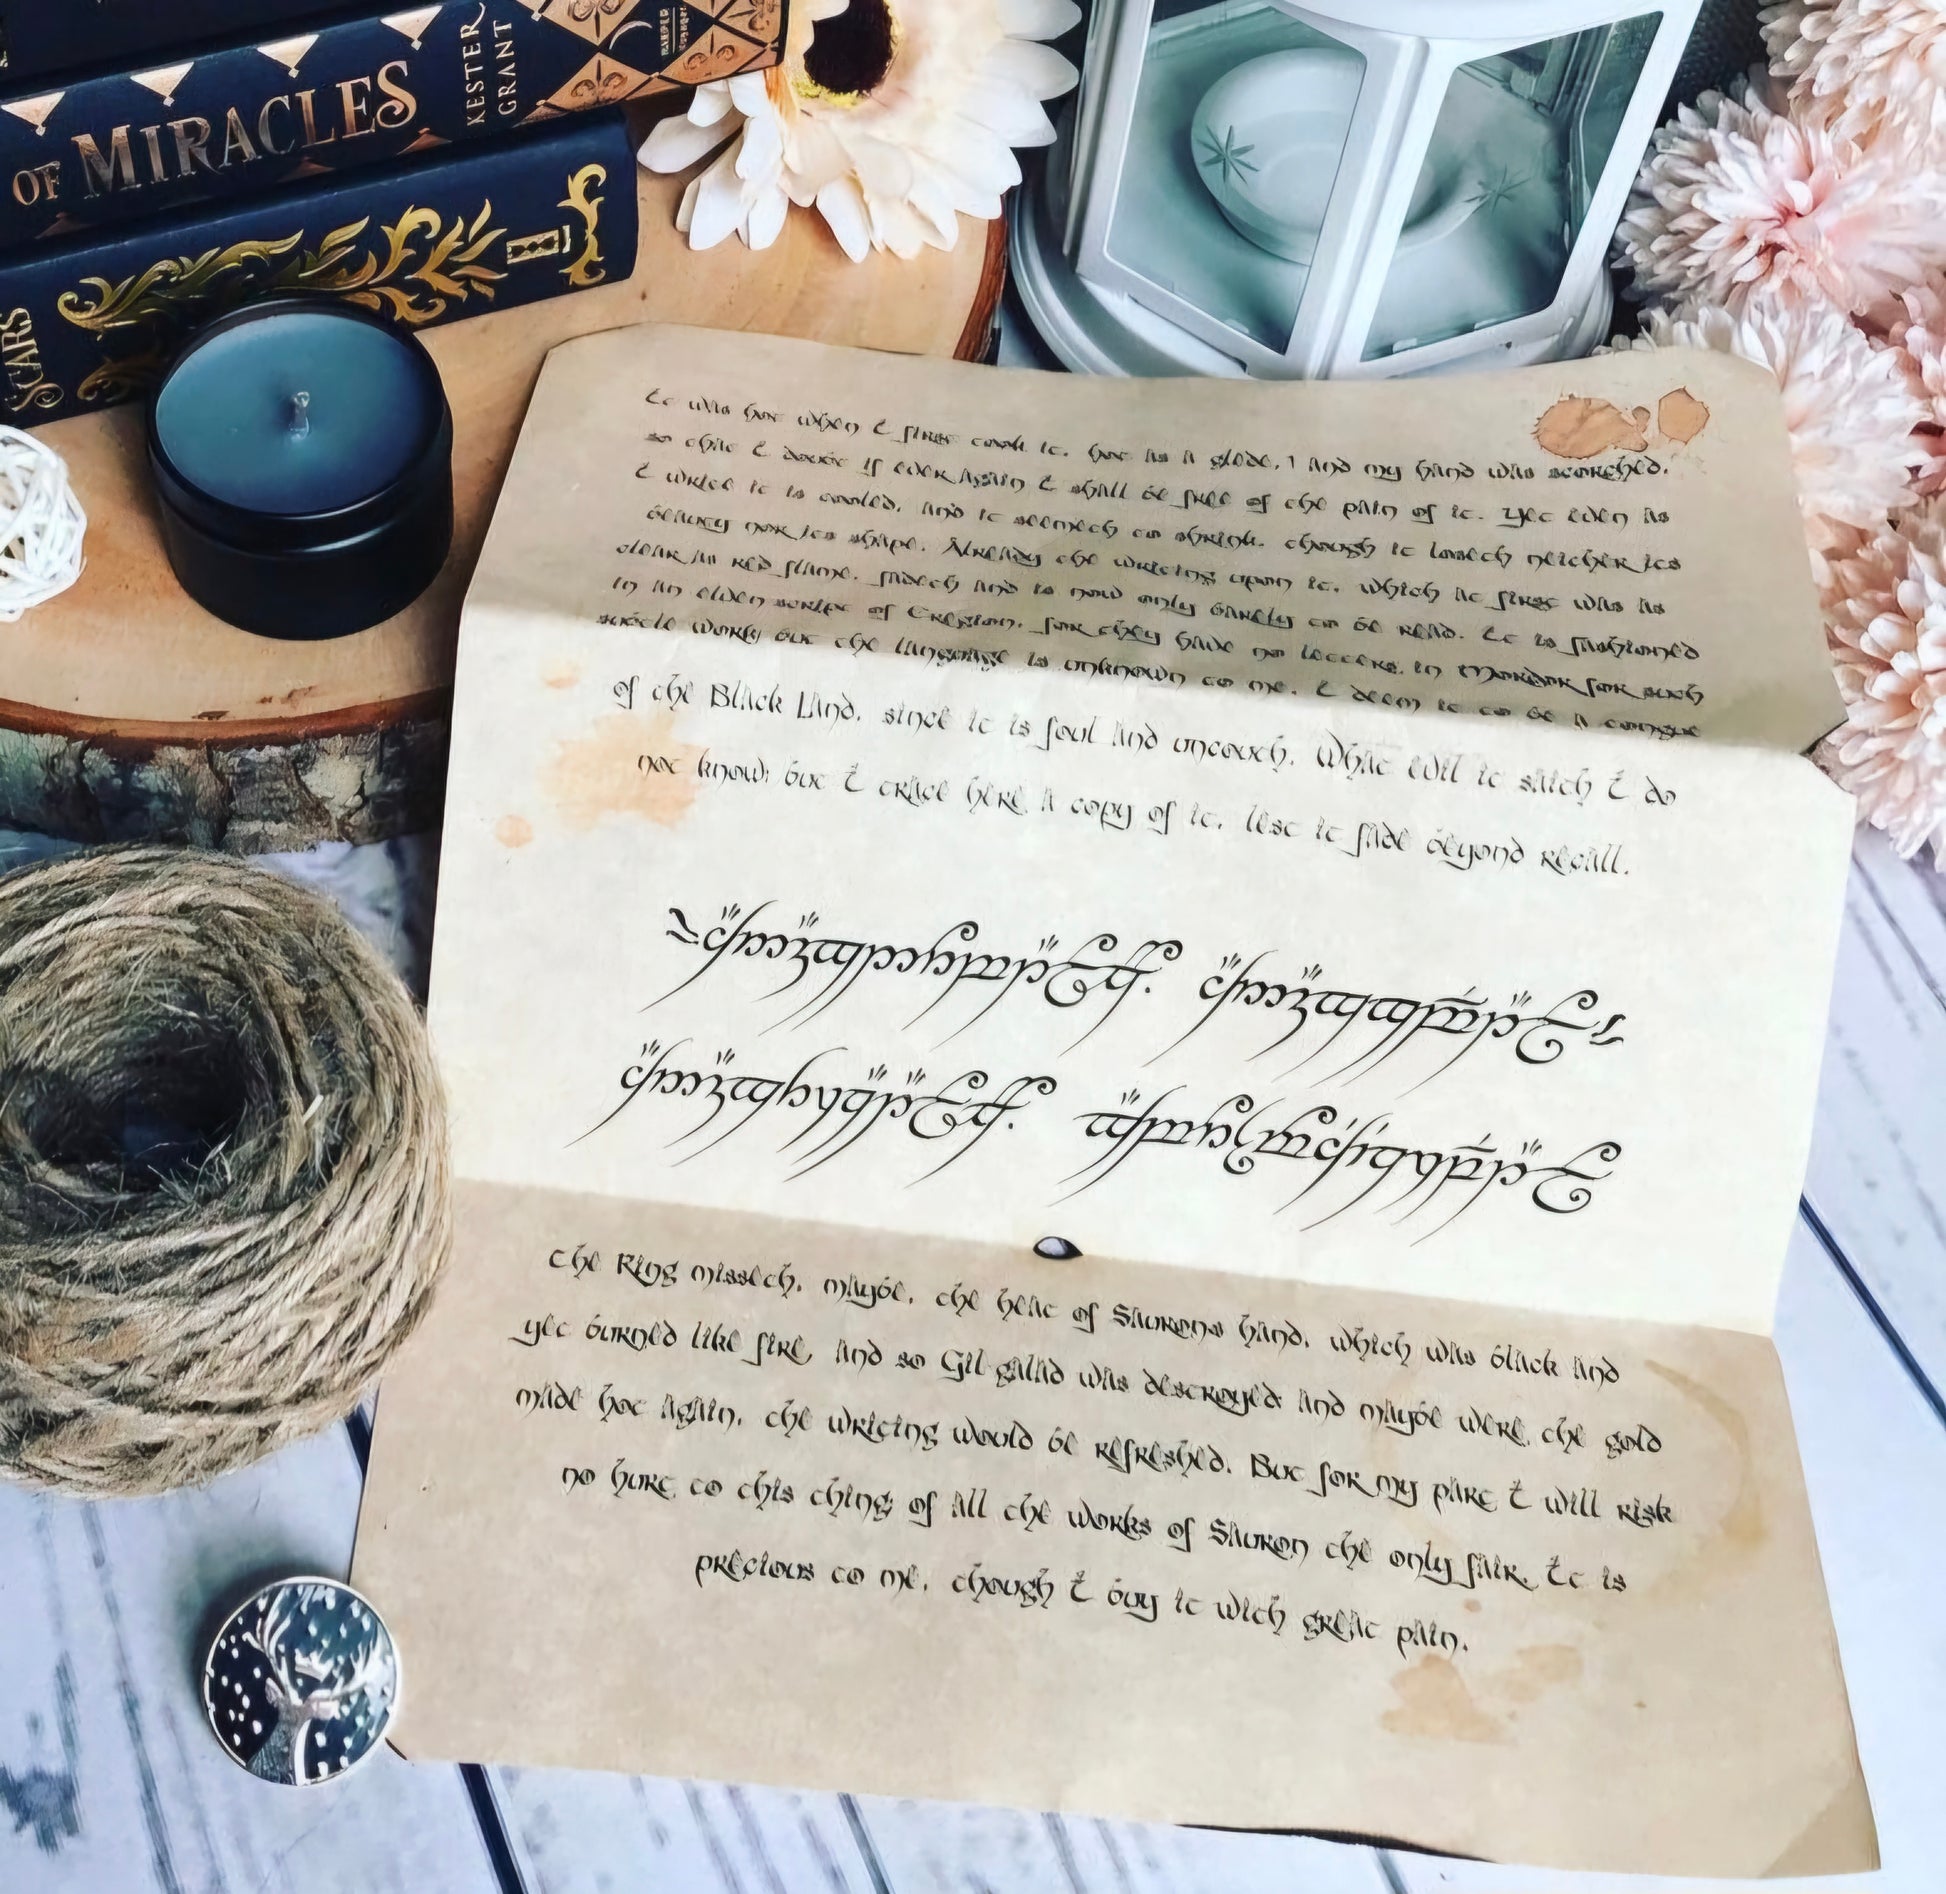 OF MIRACLES
KESTER
GRANT
HARPER
Voyager
SCARS
It was hot when I first took it, hot as a glede, and my hand was scorched,
so that I doubt if ever again I shall be free of the pain of it. Yet even as
I write it is cooled, and it seemeth to shrink, though it loseth neither its
beauty nor its shape. Already the writing upon it, which at first was as
clear as red flame, fadeth and is now only barely to be read. It is fashioned
in an elven script of Eregion, for they have no letters in Mordor for such
subtle work; but the language is unknown to me. I deem it to be a tongue
of the Black Land, since it is foul and uncouth. What evil it saith I do
not know; but I trace here a copy of it, lest it fade beyond recall.
the Ring misseth, maybe, the heat of Saurons hand, which was black and
yet burned like fire, and so Gil-galad was destroyed; and maybe were the gold
made hot again, the writing would be refreshed. But for my part I will risk
no hurt to this thing; of all the works of Sauron the only fair. It is
precious to me, though I buy it with great pain.